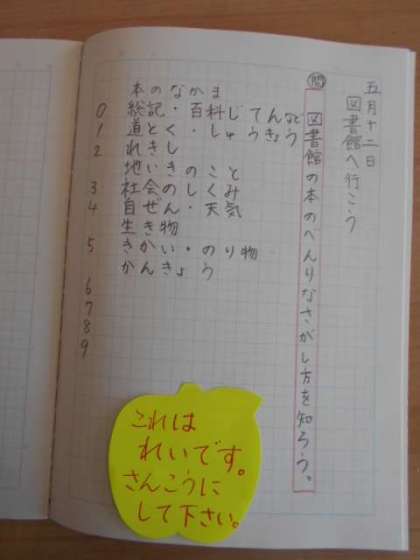 五月十二日
図書館へ行こう
問 図書館の本のべんりなさがし方を知ろう。
本のなかま
0 総記・百科じてんなど
1 道とく・しゅうきょう
2 れきし
地いきのこと
3 社会のしくみ
4 自ぜん・天気
生き物
5 きかい・のり物
かんきょう
6
7
8
9
これは
れいです。
さんこうに
して下さい。